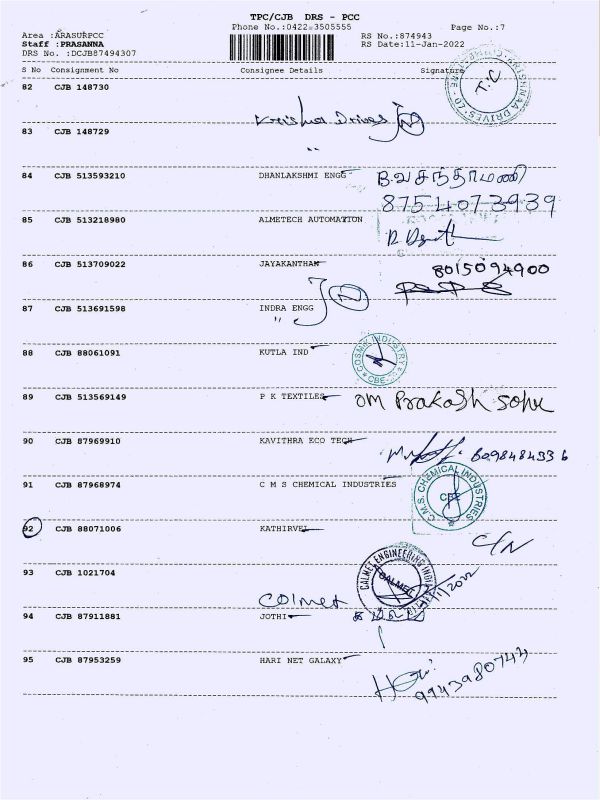 TPC/CJB DRS - PCC
Phone No.:0422-3505555 Page No.:7
Area :ARASURPCC RS No.:874943
Staff :PRASANNA RS Date:11-Jan-2022
DRS No. :DCJB87494307
S No Consignment No Consignee Details Signature
82 CJB 148730
KRISHNAA DRIVES-CO
T.C
Krisha Drives
83 CJB 148729
"
84 CJB 513593210 DHANLAKSHMI ENGG B.வசந்தாமணி
8754073939
85 CJB 513218980 ALMETECH AUTOMATION
86 CJB 513709022 JAYAKANTHAN 8015094900
87 CJB 513691598 INDRA ENGG
"
88 CJB 88061091 KUTLA IND COSMIC INDUSTRY
CBE
89 CJB 513569149 P K TEXTILES OM Prakash
90 CJB 87969910 KAVITHRA ECO TECH
91 CJB 87968974 C M S CHEMICAL INDUSTRIES C.M.S. CHEMICAL INDUSTRIES
CBE
92 CJB 88071006 KATHIRVEL C/N
93 CJB 1021704 CALMET ENGINEERING
CALMEC
Colmet
94 CJB 87911881 JOTHI
95 CJB 87953259 HARI NET GALAXY
9943980744